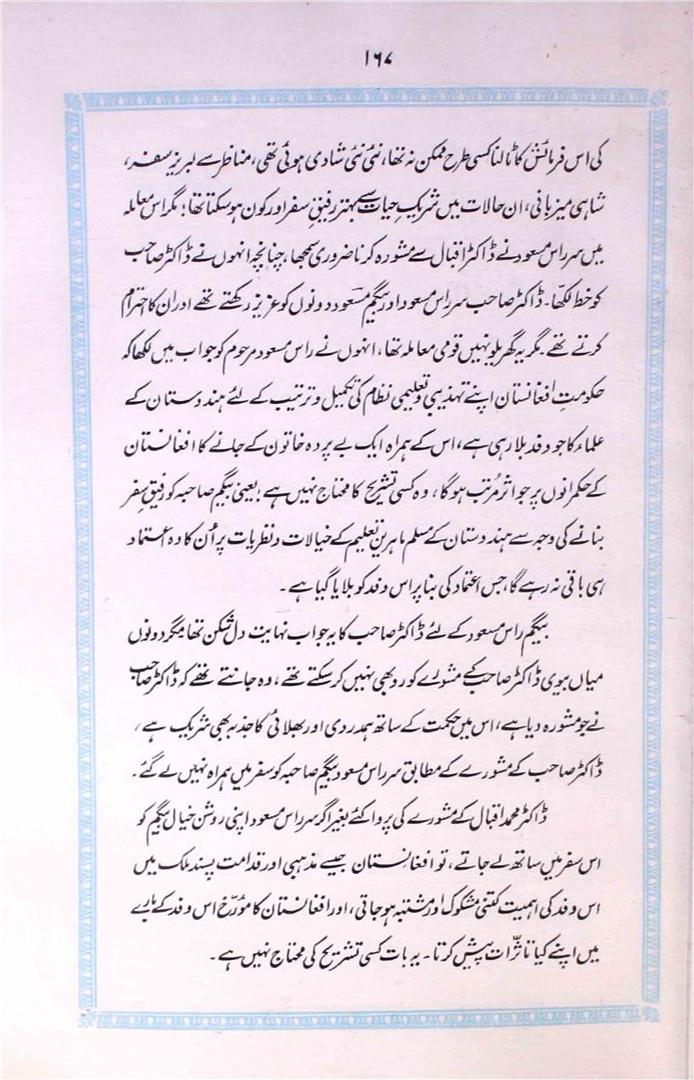 ۱۶۷
کی اس فرمائش کا ٹالنا کسی طرح ممکن نہ تھا، نئی نئی شادی ہوئی تھی، مناظر سے لبریز سفر،
شاہی میزبانی، ان حالات میں شریکِ حیات سے بہتر رفیقِ سفر اور کون ہو سکتا تھا؛ مگر اس معاملہ
میں سر راس مسعود نے ڈاکٹر اقبال سے مشورہ کرنا ضروری سمجھا، چنانچہ انہوں نے ڈاکٹر صاحب
کو خط لکھا۔ ڈاکٹر صاحب سر راس مسعود اور بیگم مسعود دونوں کو عزیز رکھتے تھے اور ان کا احترام
کرتے تھے۔ مگر یہ گھریلو نہیں قومی معاملہ تھا، انہوں نے راس مسعود مرحوم کو جواب میں لکھا کہ
حکومتِ افغانستان اپنے تہذیبی و تعلیمی نظام کی تکمیل و ترتیب کے لئے ہندوستان کے
علماء کا جو وفد بلا رہی ہے، اس کے ہمراہ ایک بے پردہ خاتون کے جانے کا افغانستان
کے حکمرانوں پر جو اثر مُرتب ہو گا، وہ کسی تشریح کا محتاج نہیں ہے؛ یعنی بیگم صاحبہ کو رفیقِ سفر
بنانے کی وجہ سے ہندوستان کے مسلم ماہرینِ تعلیم کے خیالات و نظریات پر اُن کا وہ اعتماد
ہی باقی نہ رہے گا، جس اعتماد کی بنا پر اس وفد کو بلایا گیا ہے۔
بیگم راس مسعود کے لئے ڈاکٹر صاحب کا یہ جواب نہایت دل شکن تھا مگر دونوں
میاں بیوی ڈاکٹر صاحب کے مشورے کو رد بھی نہیں کر سکتے تھے، وہ جانتے تھے کہ ڈاکٹر صاحب
نے جو مشورہ دیا ہے، اس میں حکمت کے ساتھ ہمدردی اور بھلائی کا جذبہ بھی شریک ہے،
ڈاکٹر صاحب کے مشورے کے مطابق سر راس مسعود بیگم صاحبہ کو سفر میں ہمراہ نہیں لے گئے۔
ڈاکٹر محمد اقبال کے مشورے کی پروا کئے بغیر اگر سر راس مسعود اپنی روشن خیال بیگم کو
اس سفر میں ساتھ لے جاتے، تو افغانستان جیسے مذہبی اور قدامت پسند ملک میں
اس وفد کی اہمیت کتنی مشکوک اور مشتبہ ہو جاتی، اور افغانستان کا مؤرّخ اس وفد کے بارے
میں اپنے کیا تاثّرات پیش کرتا۔ یہ بات کسی تشریح کی محتاج نہیں ہے۔